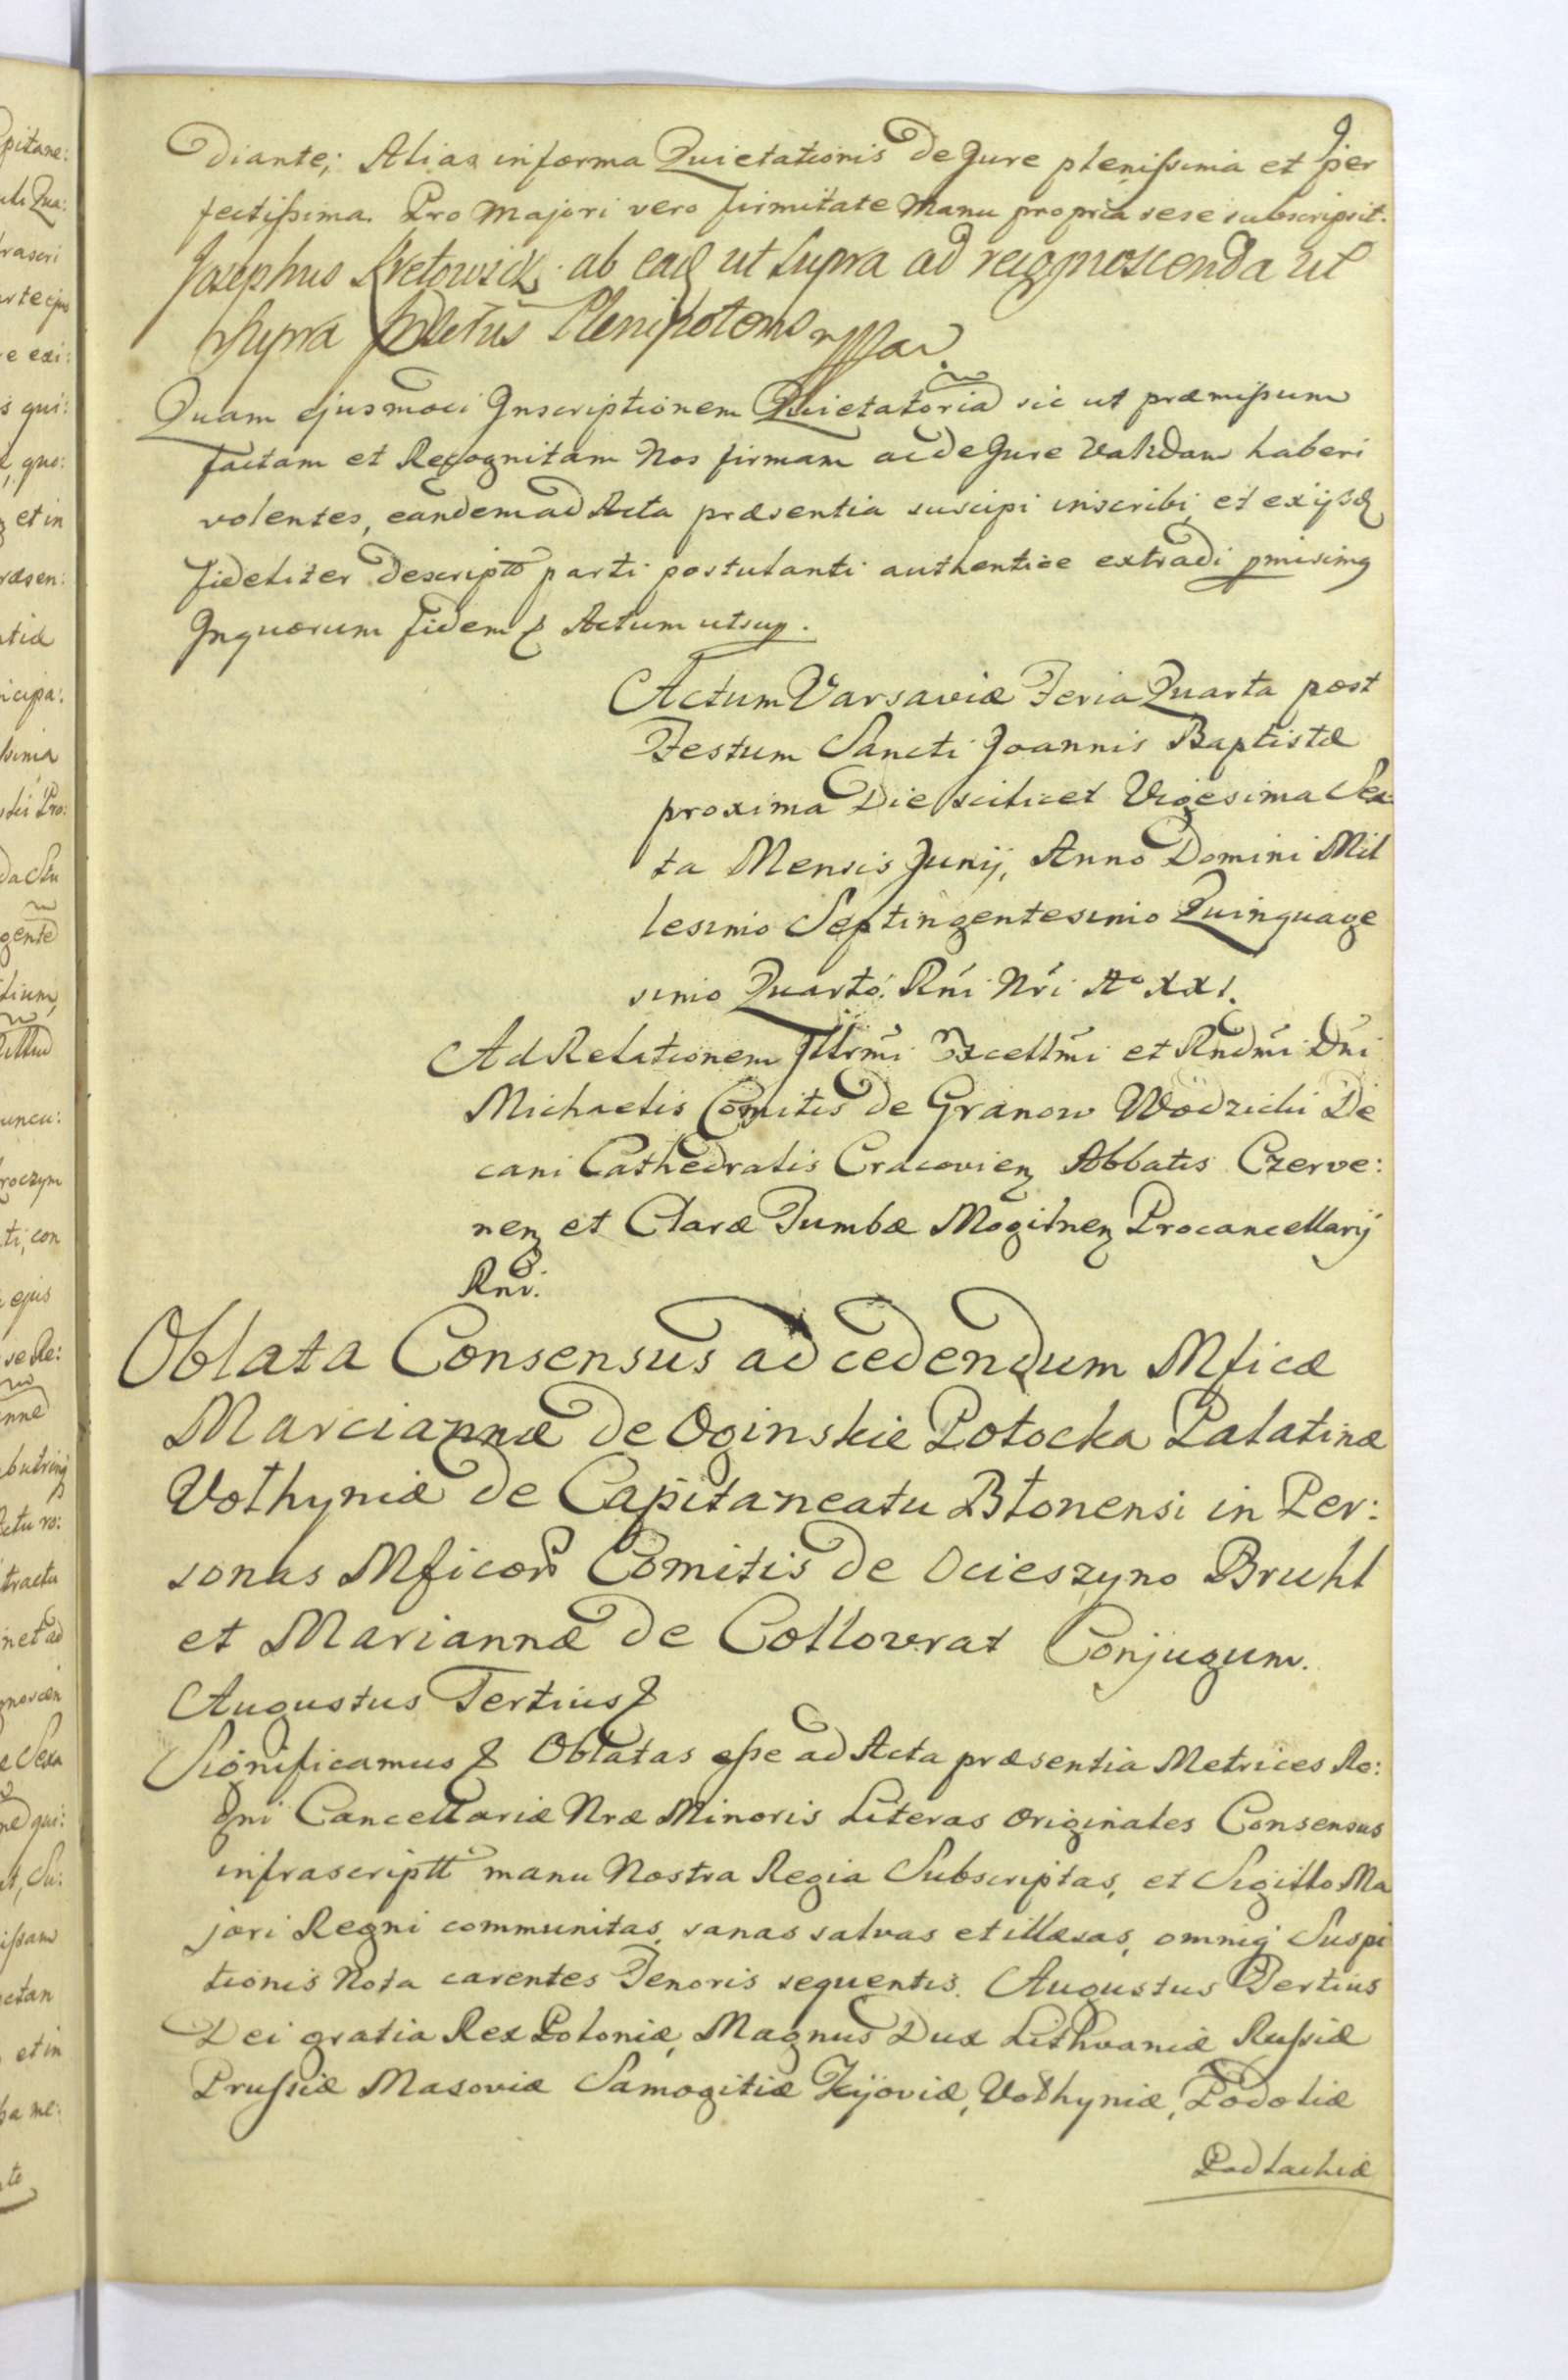 9
diante; Alias in forma Quietationis de Jure plenissima et per
fectissima. Pro Majori vero firmitate Manu propria sese subscripsit.
Josephus Kretowicz ab eadq ut supra ad recognoscenda ut
supra Plenipotens mpp
Quam ejusmodi Inscriptionem Quietatoria sic ut præmissum
factam et Recognitam Nos firmam ac de Jure Validam haberi
volentes, eandem ad Acta præsentia suscipi inscribi, et ex ijsdq
fideliter descripto parti postulanti authentice extradi pmisimg
Inquorum fidem & Actum utsup.
Actum Varsaviæ Feria Quarta post
Festum Sancti Joannis Baptistæ
proxima Die scilicet Vigesima Sex
ta Mensis Junij, Anno Domini Mil
lesimo Septingentesimo Quinquage
simo Quarto. Rni Nri Ao XXI.
Ad Relationem Illrmi Excellmi et Rndmi Dni
Michaelis Comitis de Granow Wodzicki De
cani Cathedralis Cracovien Abbatis Czerve:
nen et Claræ Tumbæ Mogilnen Procancellarij
Rni.
Oblata Consensus ad cedendum Mficæ
Marciannæ de Oginskie Potocka Palatinæ
Volhyniæ de Capitaneatu Blonensi in Per:
sonas Mficor Comitis de Ocieszyno Bruhl
et Mariannæ de Collowrat Conjugum.
Augustus Tertius &
Significamus & Oblatas esse ad Acta præsentia Metrices Re:
gni Cancellariæ Nræ Minoris Literas Originales Consensus
infrascriptt manu Nostra Regia Subscriptas, et Sigillo Ma
jori Regni communitas, sanas salvas et illæsas, omniq Suspi
tionis Nota carentes Tenoris sequentis. Augustus Tertius
Dei gratia Rex Poloniæ, Magnus Dux Lithvaniæ Russiæ
Prussiæ Masoviæ Samogitiæ Kijoviæ, Volhyniæ, Podoliæ
Podlachiæ